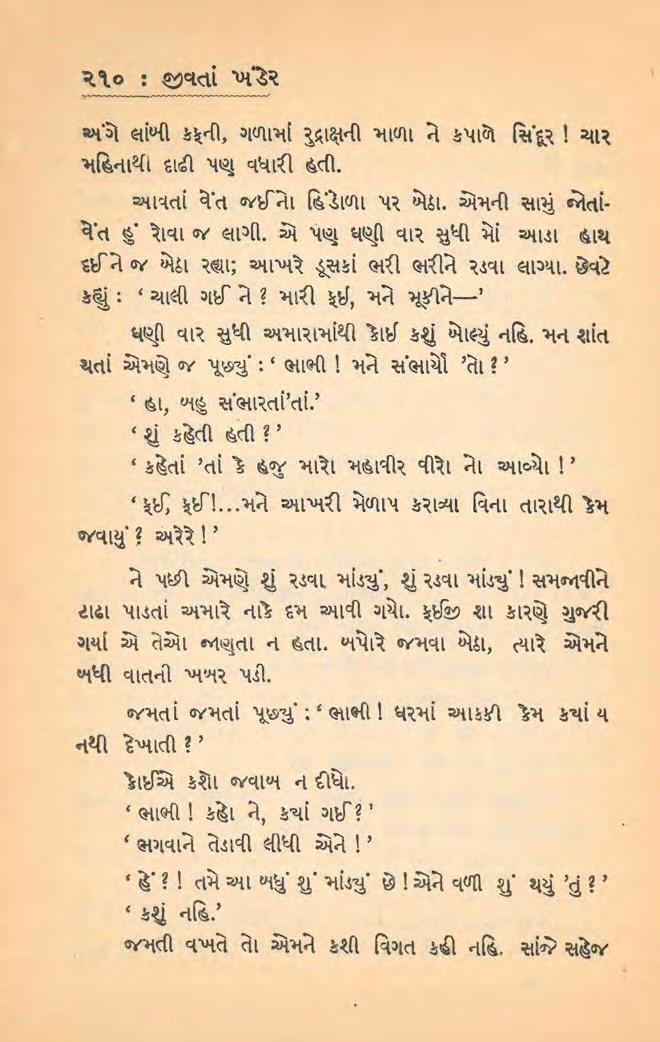 ૨૧૦ : જીવતાં ખંડેર
અંગે લાંબી કફની, ગળામાં રુદ્રાક્ષની માળા ને કપાળે સિંદૂર ! ચાર
મહિનાથી દાઢી પણ વધારી હતી.
આવતાં વેંત જઈને હિંડોળા પર બેઠા. એમની સામું જોતાં-
વેંત હું રોવા જ લાગી. એ પણ ઘણી વાર સુધી મોં આડા હાથ
દઈને જ બેઠા રહ્યા; આખરે ડૂસકાં ભરી ભરીને રડવા લાગ્યા. છેવટે
કહ્યું : ‘ ચાલી ગઈ ને ? મારી ફઈ, મને મૂકીને—’
ઘણી વાર સુધી અમારામાંથી કોઈ કશું બોલ્યું નહિ. મન શાંત
થતાં એમણે જ પૂછ્યું : ‘ ભાભી ! મને સંભાર્યો ’તો ? ’
‘ હા, બહુ સંભારતાં’તાં.’
‘ શું કહેતી હતી ? ’
‘ કહેતાં ’તાં કે હજુ મારો મહાવીર વીરો નો આવ્યો ! ’
‘ ફઈ, ફઈ !...મને આખરી મેળાપ કરાવ્યા વિના તારાથી કેમ
જવાયું ? અરેરે ! ’
ને પછી એમણે શું રડવા માંડ્યું, શું રડવા માંડ્યું ! સમજાવીને
ટાઢા પાડતાં અમારે નાકે દમ આવી ગયો. ફઈજી શા કારણે ગુજરી
ગર્યાં એ તેઓ જાણતા ન હતા. બપોરે જમવા બેઠા, ત્યારે એમને
બધી વાતની ખબર પડી.
જમતાં જમતાં પૂછ્યું : ‘ ભાભી ! ઘરમાં આકફી કેમ ક્યાં ય
નથી દેખાતી ? ’
કોઈએ કશો જવાબ ન દીધો.
‘ ભાભી ! કહો ને, ક્યાં ગઈ ? ’
‘ ભગવાને તેડાવી લીધી એને ! ’
‘ હેં ? ! તમે આ બધું શું માંડ્યું છે ! એને વળી શું થયું ’તું ? ’
‘ કશું નહિ.’
જમતી વખતે તો એમને કશી વિગત કહી નહિ. સાંજે સહેજ